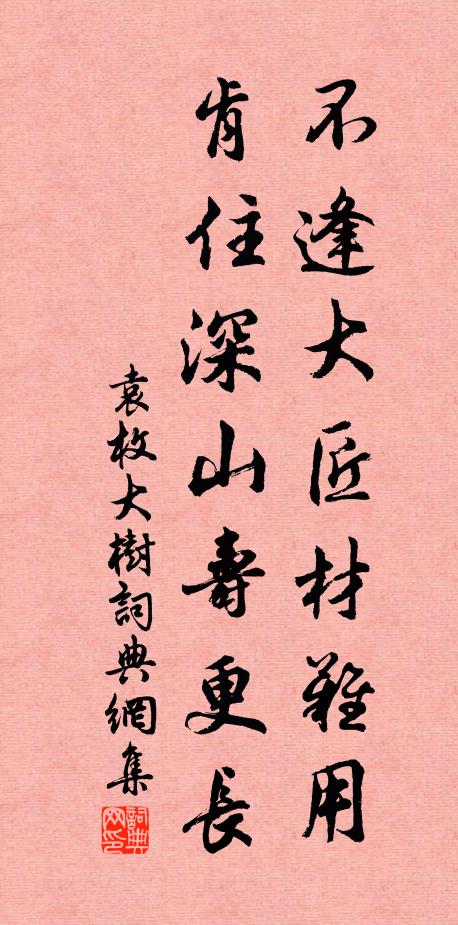 不逢大匠材難用
肯住深山壽更長
袁枚大樹詞典網集
詞典網印